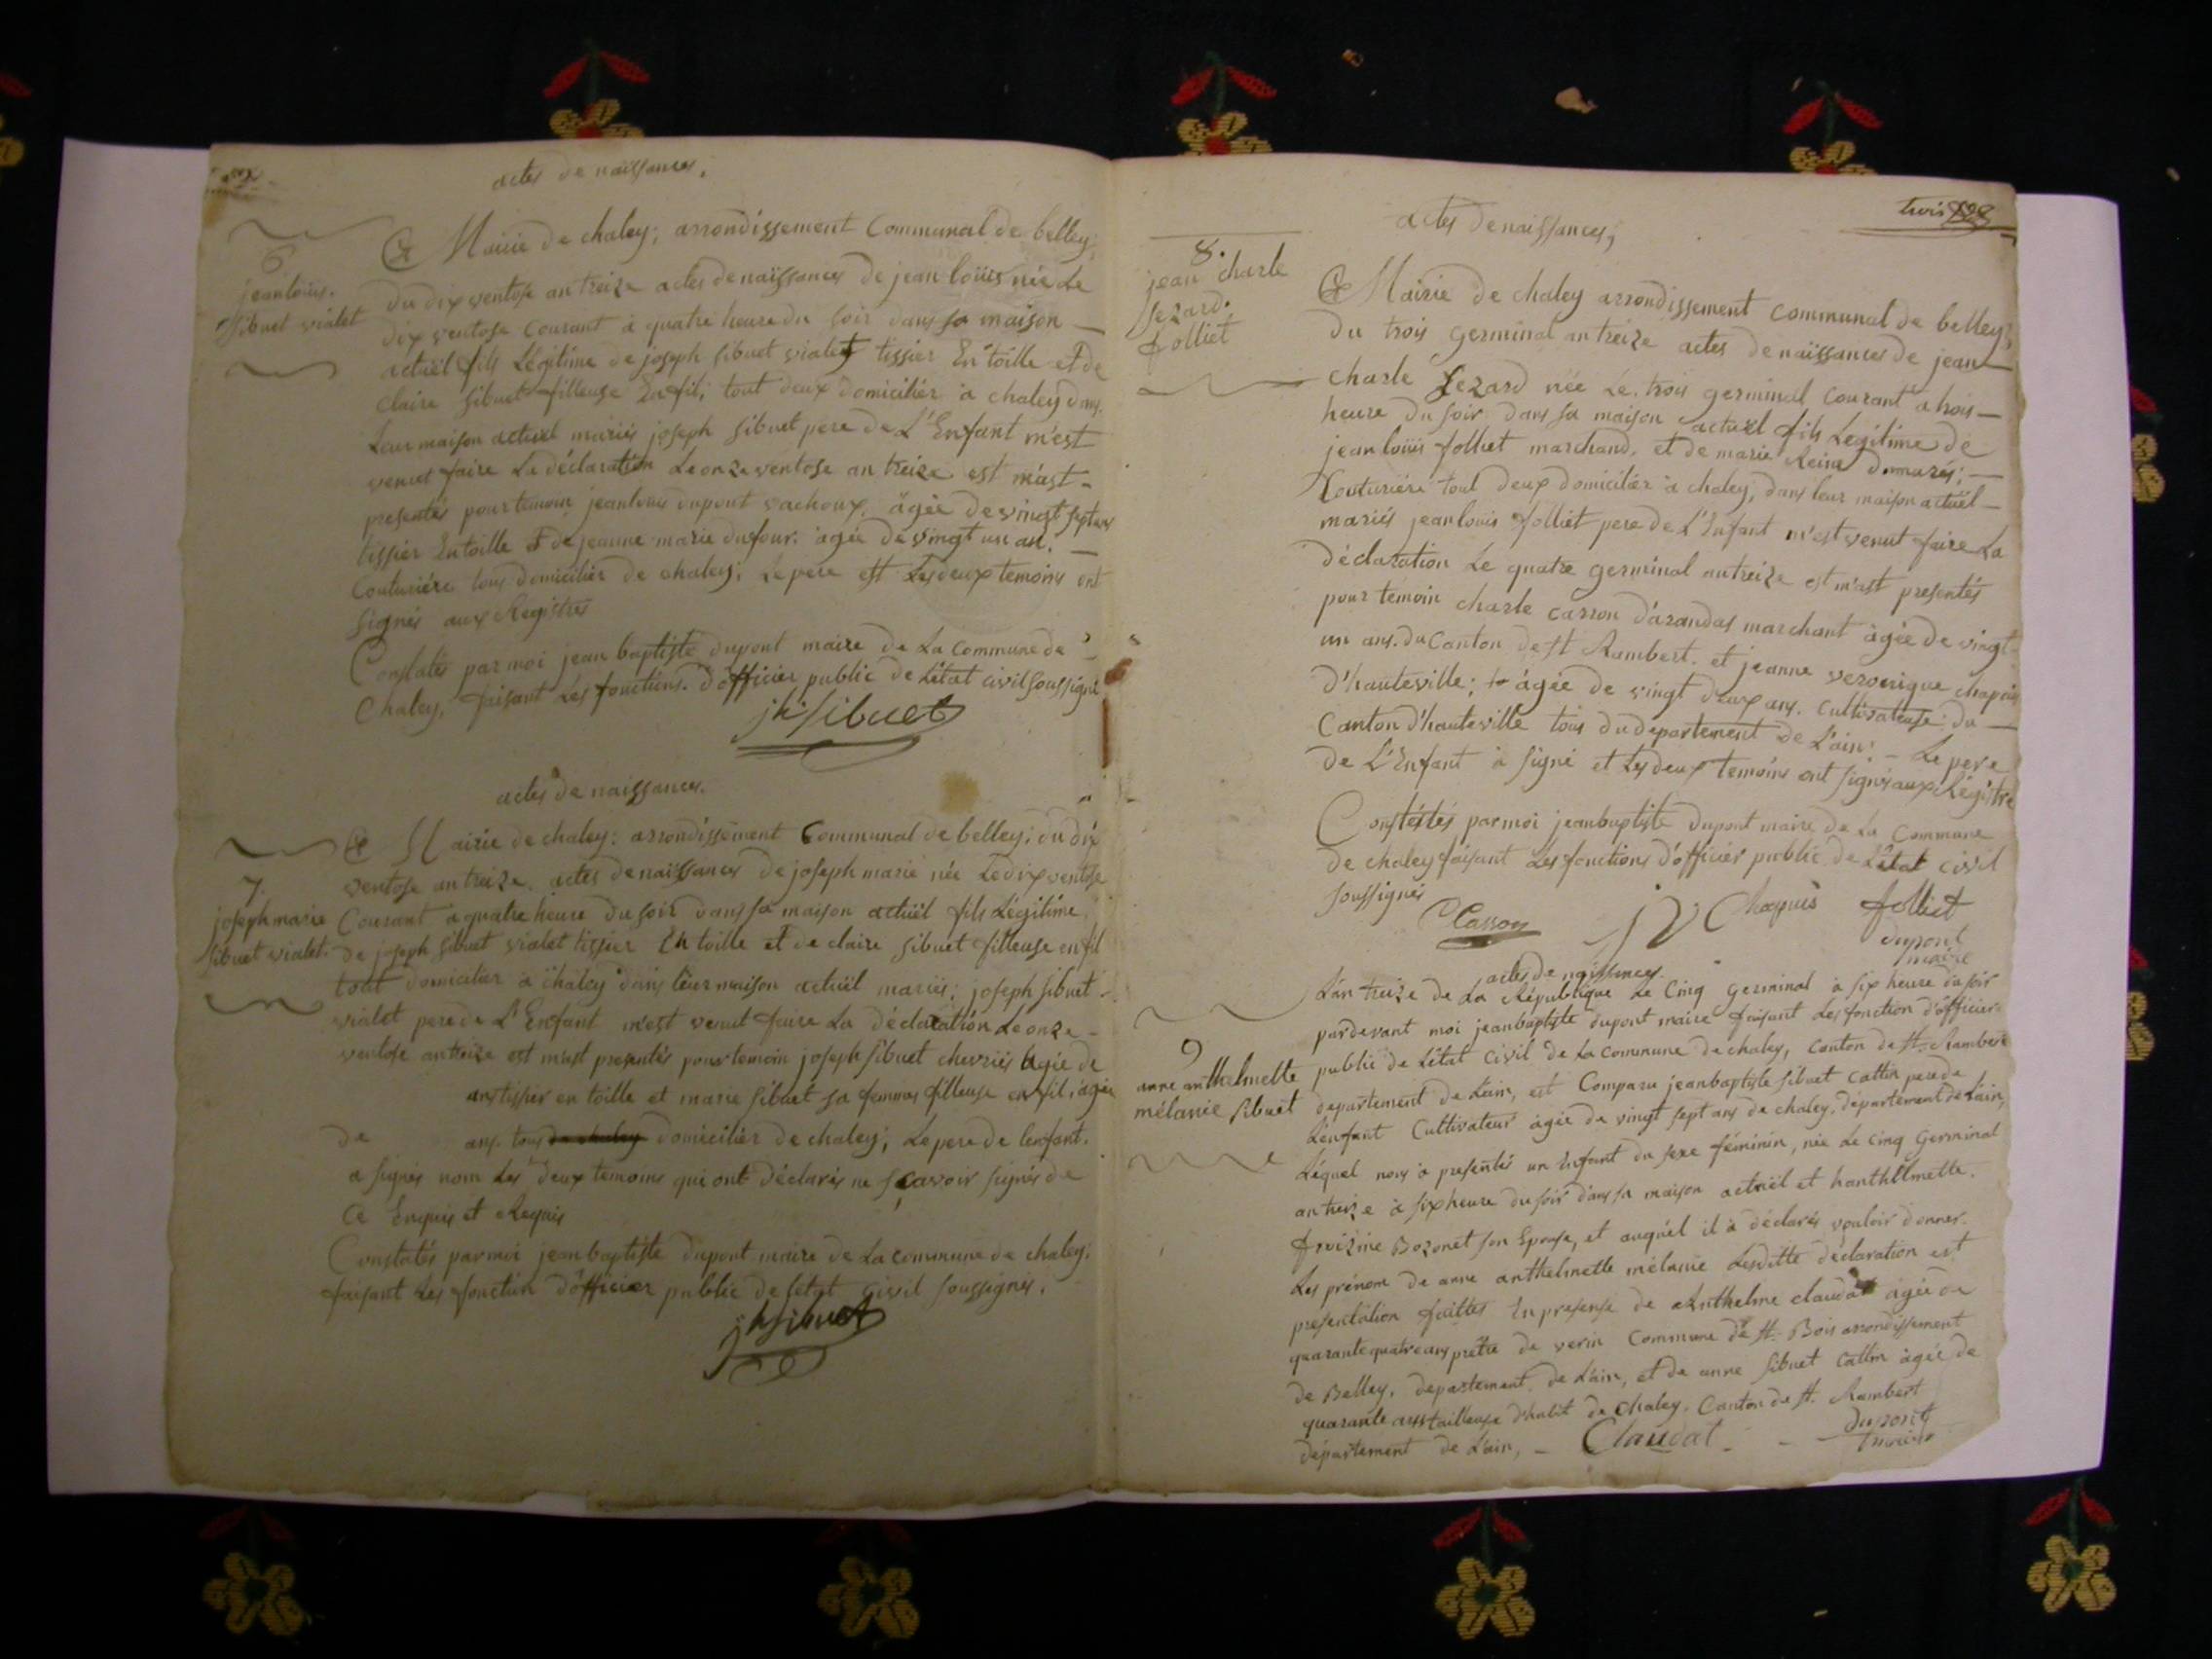 actes de naissances,
6
jean louis.
sibuet vialet
Mairie de chaley; arrondissement Communal de belley;
du dix ventose an treize actes de naissances de jean louis née Le
dix ventose Courant à quatre heure du soir dans sa maison
actuël fils Légitime de joseph sibuet vialet tissier En toille et de
Claire sibuet filleuse En fil; tout deux domiciliér à chaley dans
Leur maison actuel mariés joseph sibuet pere de L'Enfant m'est
venut faire La déclaration Le onze ventose an treize est m'ast
presentés pour temoin jean louis dupont vachoux, âgée de vingt sept ans
tissier En toille & de jeanne marie dufour. âgée de vingt un an.
Couturiére tous domiciliér de chaley; Le pere est Les deux temoins ont
signés aux Registres
Constatés par moi jean baptiste dupont maire de La Commune de
Chaley, faisant Les fonctions d'officier public de L'état civil soussigné
jh sibuet
actes de naissances.
7.
joseph marie
sibuet vialet.
Mairie de chaley: arrondissement Communal de belley; du dix
ventose an treize. actes de naissances de joseph marie née Le dix ventose
Courant à quatre heure du soir dans sa maison actuël fils Légitime
de joseph sibuet vialet tissier En toille et de claire sibuet filleuse en fil
tout domiciliér à chaley dans leur maison actuël mariés; joseph sibuet
vialet pere de L'Enfant m'est venut faire La déclaration Le onze
ventose an treize est m'ast presentés pour temoin joseph sibuet chevriés âgée de
ans tissier en toille et marie sibuet sa femme filleuse en fil, âgée
de ans. tous de chaley domiciliér de chaley; Le pere de lenfant.
a signés nom Les deux temoins qui ont déclarés ne sçavoir signés de
Ce Enquis et Requis
Constatés par moi jean baptiste dupont maire de La commune de chaley.
faisant Les fonction d'officier public de létat civil soussignés.
jh sibuet
trois
actes de naissances;
8.
jean charle
Sezard.
folliet
Mairie de chaley arrondissement communal de belley;
du trois germinal an treize actes de naissances de jean
charle Sezard née Le trois germinal courant a trois
heure du soir dans sa maison actuel fils Legitime de
jean louis folliet marchand. et de marie Reine dumarés;
Couturiére tout deux domiciliér à chaley, dans leur maison actuël
mariés jean louis folliet pere de L'Enfant m'est venut faire La
déclaration Le quatre germinal an treize est m'ast presentés
pour temoin charle carron d'arandas marchant âgée de vingt
un ans. du Canton de st Rambert. et jeanne veronique chapuis
d'hauteville; âgée de vingt deux ans. cultivateuse du
Canton d'hauteville tous du departement de L'ain; Le pere
de L'Enfant à signé et Les deux temoins ont signés aux Régistre
Constatés par moi jean baptiste dupont maire de La Commune
de chaley faisant Les fonctions d'officier public de L'état civil
soussignés
Carron J V Chapuis folliet
dupont
maire
actes de naissances.
9
anne anthelmette
mélanie sibuet
L'an treize de La République Le Cinq Germinal à six heure du soir
pardevant moi jean baptiste dupont maire faisant Les fonction d'officier
public de L'état Civil de La commune de chaley, canton de st. Rambert
departement de L'ain, est Comparu jean baptiste sibuet cattin pere de
L'enfant Cultivateur âgée de vingt sept ans de chaley, département de L'ain,
Léquel nous à presentés un Enfant du sexe féminin, née Le cinq Germinal
an treize à six heure du soir dans sa maison actuël et hanthelmette.
froizine Bozonet son Epouse, et auquél il à déclarés vouloir donner.
Les prénom de anne anthelmette mélanie Lesditte déclaration est
presentation faittes En presense de Anthelme claudat âgée de
quarante quatre ans prêtre de verin Commune de st. Bois arrondissement
de Belley, departement de L'ain, et de anne sibuet cattin âgée de
quarante ans tailleuse d'habit de chaley. Canton de st. Rambert
département de L'ain, Claudat dupont
maire